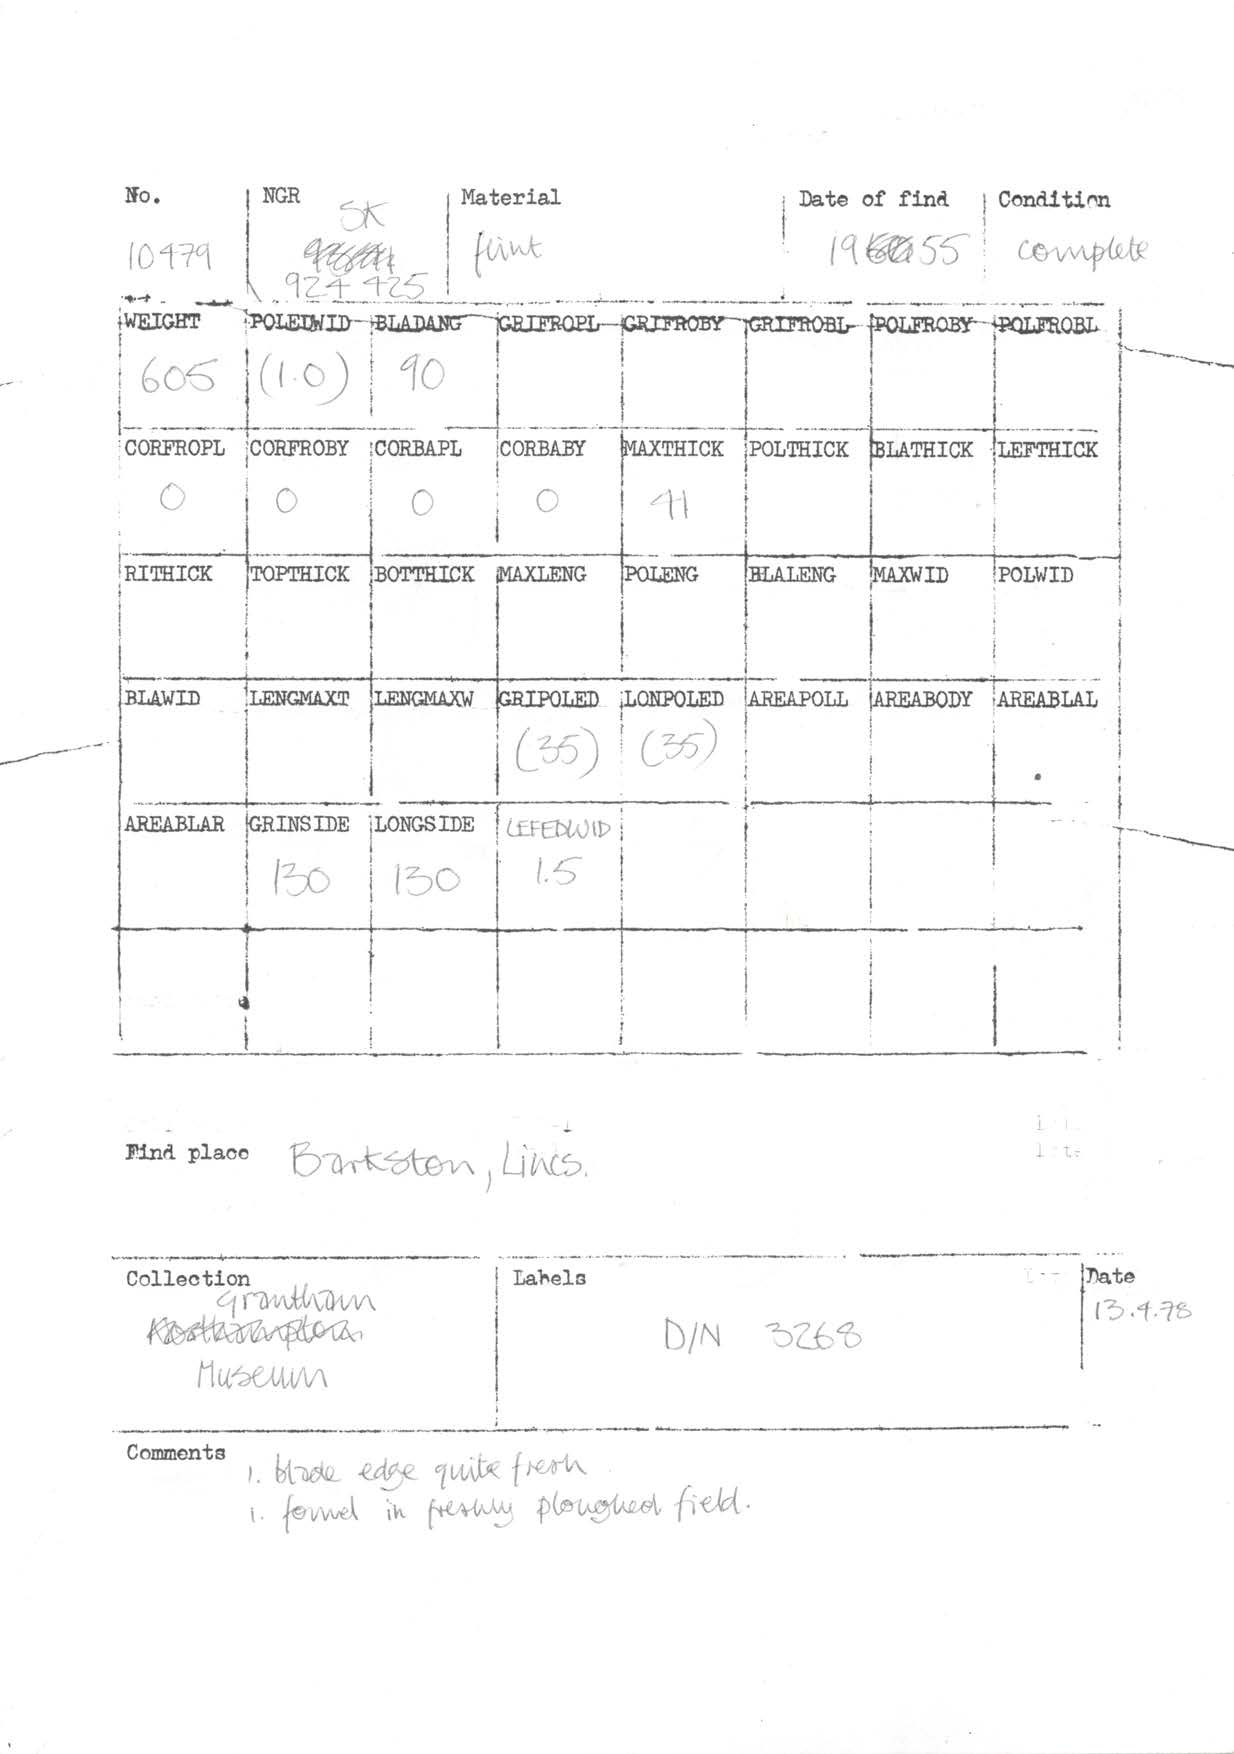 No. NGR Material Date of find Condition
SK
10479 flint 19 55 complete
924 425
WEIGHT POLEDWID BLADANG GRIFROPL GRIFROBY GRIFROBL POLFROBY POLFROBL
605 (1.0) 90
CORFROPL CORFROBY CORBAPL CORBABY MAXTHICK POLTHICK BLATHICK LEFTHICK
0 0 0 0 41
RITHICK TOPTHICK BOTTHICK MAXLENG POLENG BLALENG MAXWID POLWID
BLAWID LENGMAXT LENGMAXW GRIPOLED LONPOLED AREAPOLL AREABODY AREABLAL
(35) (35)
AREABLAR GRINSIDE LONGSIDE LEFEDWID
130 130 1.5
Find place Barkston, Lincs.
Collection Labels Date
Grantham 13.4.78
Museum D/N 3268
Comments
1. blade edge quite fresh
1. found in freshly ploughed field.